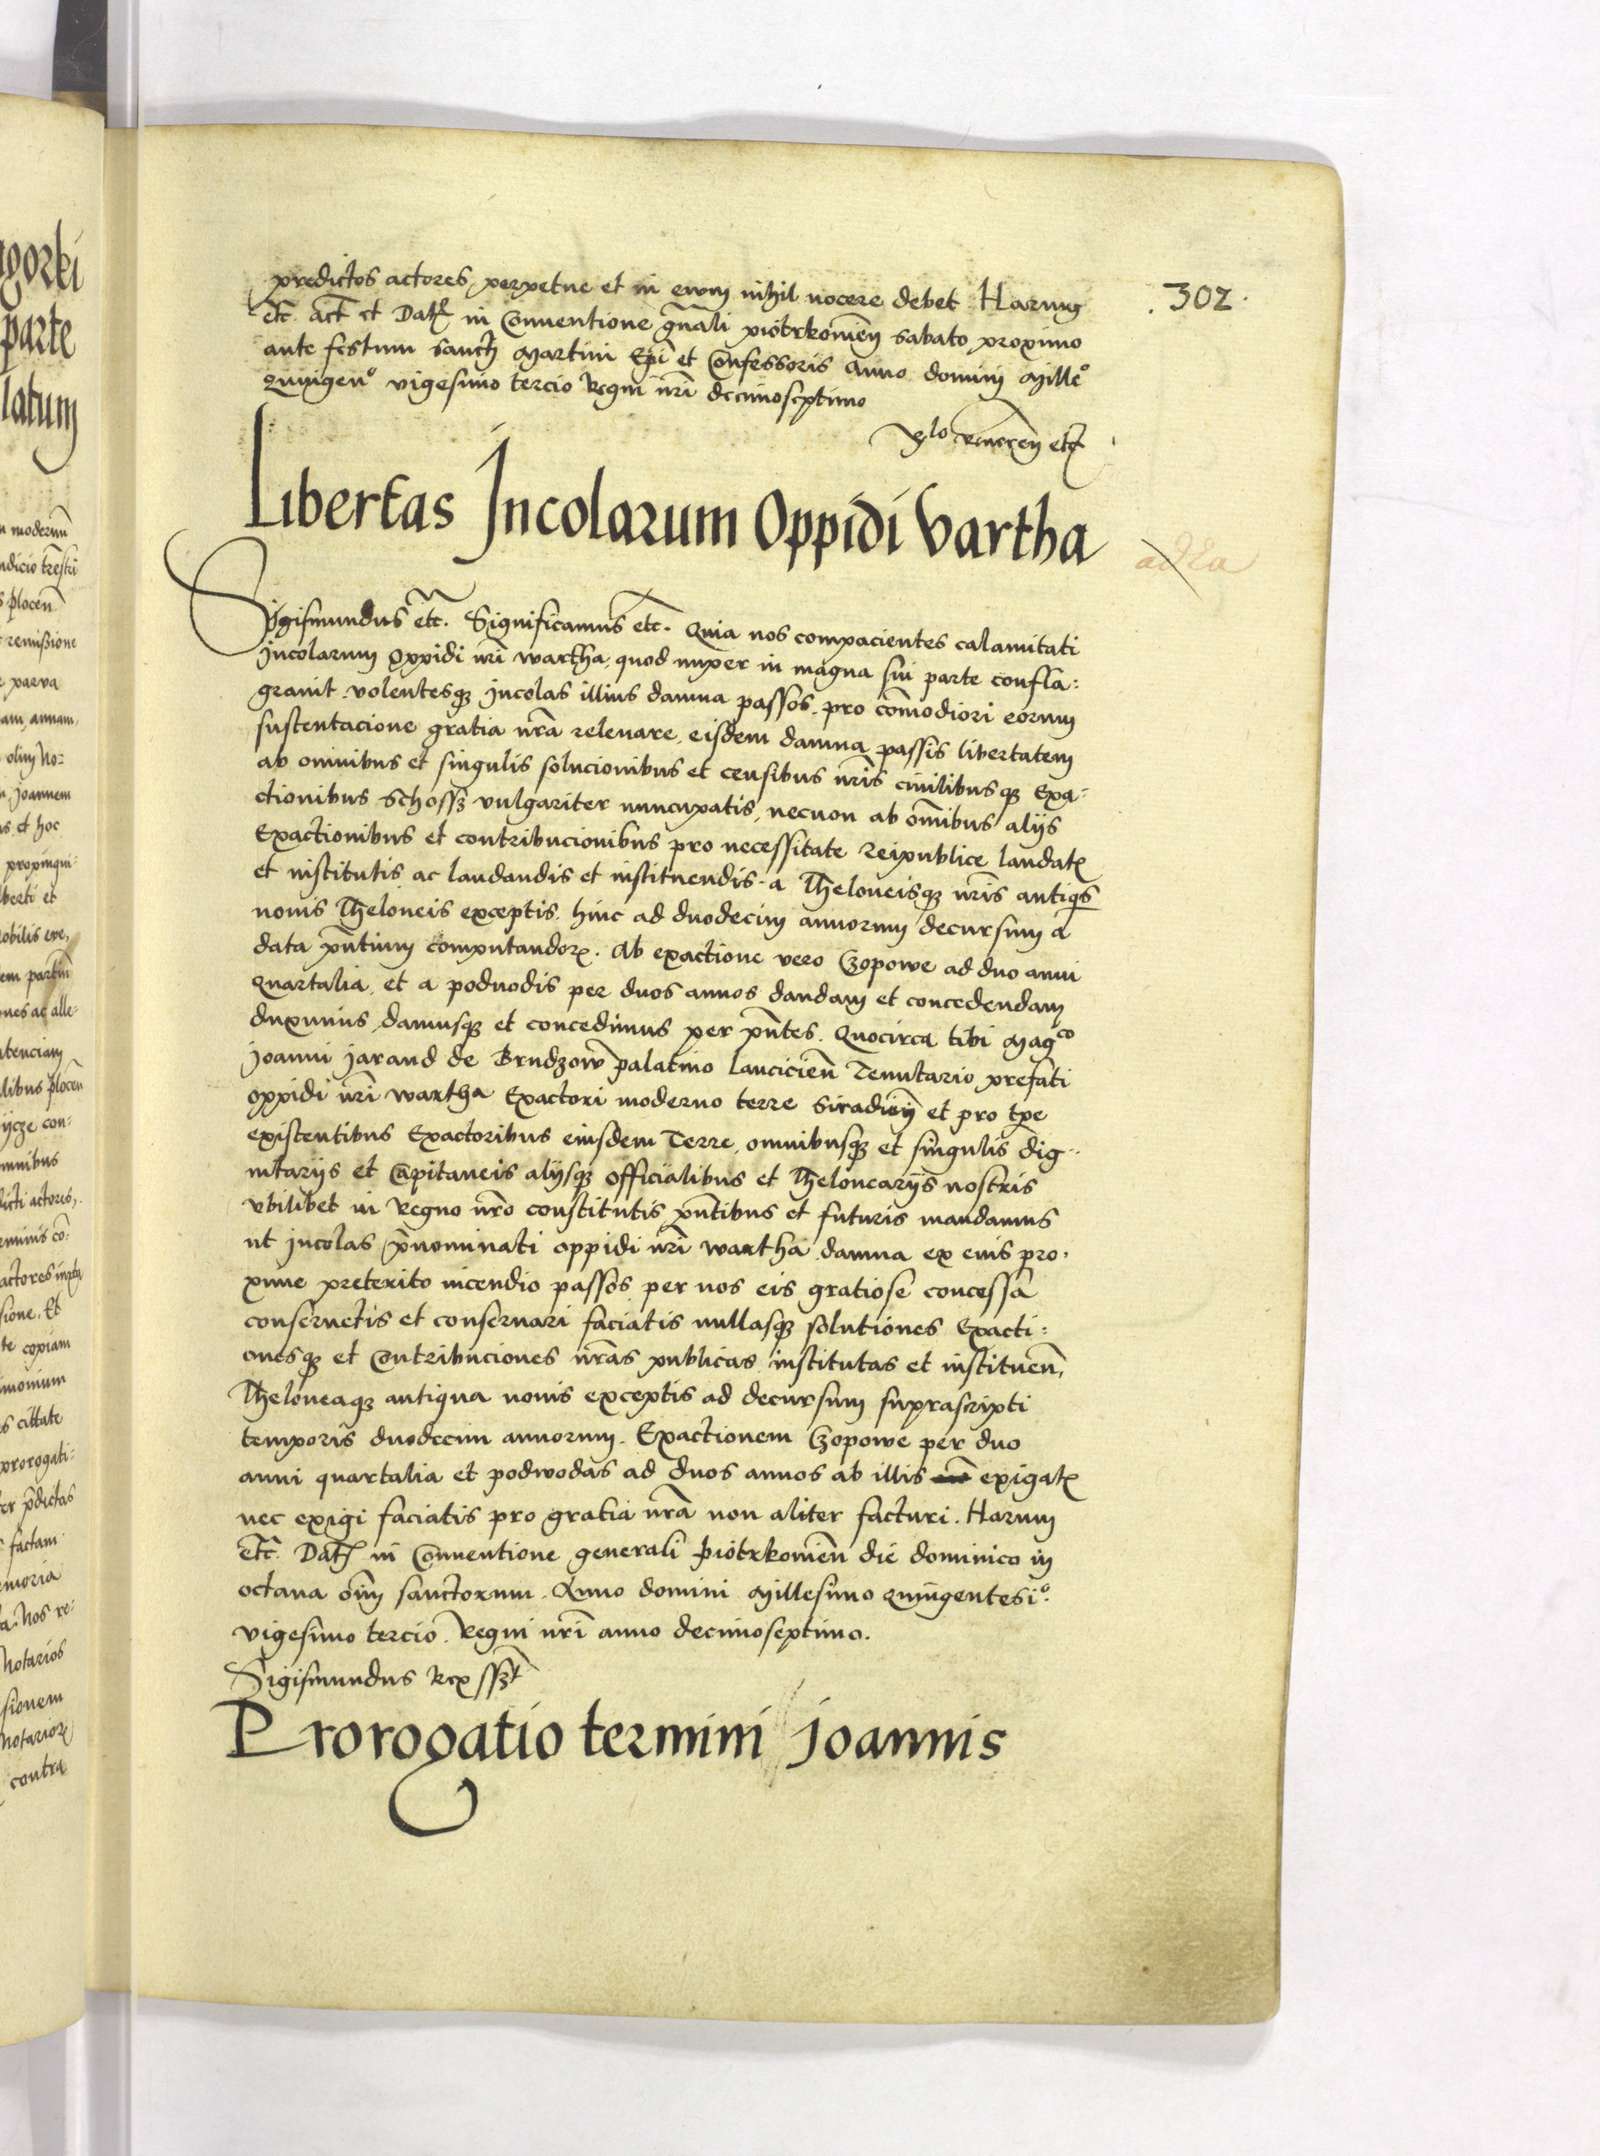 .302.
predictos actores perpetue et in evum nihil nocere debet Harum
etc̃ act̃ et Datꝭ in Conventione gñali piotrkovieñ sabato proximo
ante festum sancti Martini Epĩ et Confessoris Anno domini Milleº
quingenº vigesimo tercio Regni nr̃i decimoseptimo
Rlo etc̃
Libertas Incolarum Oppidi Vartha
Sigismundus etc̃. Significamus etc̃. Quia nos compacientes calamitati
Incolarum Oppidi nr̃i wartha, quod nuper in magna sui parte confla:
gravit volentesqꝫ Incolas illius damna passos, pro com̃odiori eorum
sustentacione gratia nr̃a relevare, eisdem damna passis libertatem
ab omnibus et singulis solucionibus et censibus nr̃is civilibusqꝫ Exa:
ctionibus Schossꝫ vulgariter nuncupatis, necnon ab om̃ibus alijs
Exactionibus et contribucionibus pro necessitate Reipublice laudatꝭ
et institutis ac laudandis et instituendis, a Theloneisqꝫ nr̃is antiqs
novis Theloneis exceptis, hinc ad duodecim annorum decursum a
data pñtium computandoꝝ. Ab exactione vero Czopowe ad duo anni
quartalia, et a podvodis per duos annos dandam et concedendam
duximus, damusqꝫ et concedimus per pñtes. Quocirca tibi Magco
Joanni Jarand de Brudzow palatino Lancicień Tenutario prefati
oppidi nr̃i wartha Exactori moderno terre Siradień et pro tpe
existentibus Exactoribus eiusdem Terre, omnibusqꝫ et singulis dig:
nitarijs et Capitaneis alijsqꝫ officialibus et Thelonearijs nostris
ubilibet in Regno nr̃o constitutis pñtibus et futuris mandamus
ut incolas p̃nominati oppidi nr̃i wartha damna ex eius pro:
xime preterito incendio passos per nos eis gratiose concessa
conservetis et conservari faciatis nullasqꝫ solutiones Exacti:
onesqꝫ et Contribuciones nr̃as publicas institutas et instituen̄,
Theloneaqꝫ antiqua novis exceptis ad decursum suprascripti
temporis duodecim annorum. Exactionem Czopowe per duo
anni quartalia et podwodas ad duos annos ab illis exigatꝭ
nec exigi faciatis pro gratia nr̃a non aliter facturi. Harum
etc̃. Datꝭ in Conventione generali piotrkovień die dominico in
octava om̃ sanctorum. Anno domini Millesimo quingentesiº.
vigesimo tercio. Regni nr̃i anno decimoseptimo.
Sigismundus Rex sszt
Prorogatio termini Joannis